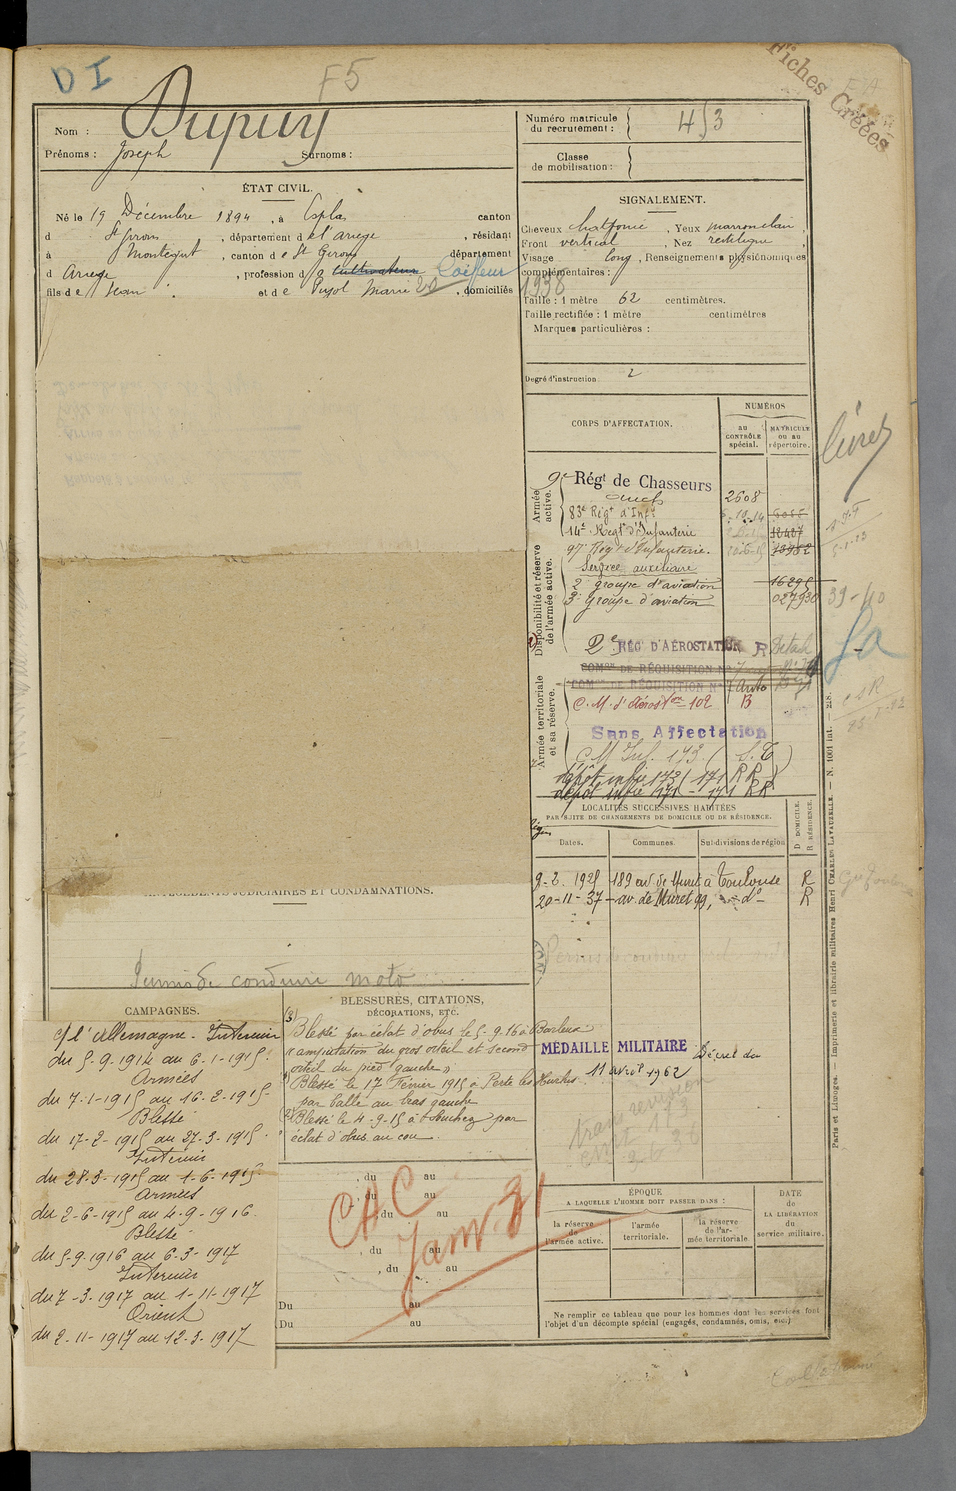 D I
F5
Fiches Créées
Nom : Dupuy
Prénoms : Joseph Surnoms :
Numéro matricule du recrutement : 453
Classe de mobilisation :
ÉTAT CIVIL.
Né le 19 Décembre 1894, à Esplas canton
d St Girons, département de l'Ariège, résidant
à Montégut, canton de St Girons département
d Ariège, profession d Cultivateur Coiffeur
fils de Jean et de Pujol Marie, domiciliés
SIGNALEMENT.
Cheveux chat foncé, Yeux marron clair,
Front vertical, Nez rectiligne,
Visage long, Renseignements physionomiques
complémentaires :
1938
Taille : 1 mètre 62 centimètres.
Taille rectifiée : 1 mètre centimètres
Marques particulières :
Degré d'instruction 2
CORPS D'AFFECTATION.
NUMÉROS
au CONTRÔLE spécial.
MATRICULE ou au répertoire.
Armée active.
9e Régt de Chasseurs
Auch 2608
83e Régt d'Infie 6055
14e Régt d'Infanterie
97e Régt d'Infanterie.
Disponibilité et réserve de l'armée active.
Service auxiliaire
2e groupe d'aviation 16295
3e Groupe d'aviation 027930
2e RÉG' D'AÉROSTATION R Détach
COMon DE RÉQUISITION No 7
COMon DE RÉQUISITION No 7 Auto
C. M. d'Aérostion 102 B
Armée territoriale et sa réserve.
Sans Affectation
C M Inf. 173 (S.T)
dépôt infie 173/171 RR
dépôt infie 171 - 171 RR
livret
39-40
LOCALITÉS SUCCESSIVES HABITÉES
PAR SUITE DE CHANGEMENTS DE DOMICILE OU DE RÉSIDENCE.
Dates. Communes. Subdivisions de région
D DOMICILE. R RÉSIDENCE.
9-2.1925 189 av. de Muret à Toulouse R
20-11-37 av. de Muret 99, do R
ANTÉCÉDENTS JUDICIAIRES ET CONDAMNATIONS.
Permis de conduire moto
CAMPAGNES.
c/ l'Allemagne - Intérieur
du 5-9-1914 au 6-1-1915.
Armées
du 7-1-1915 au 16-2-1915
Blessé
du 17-2-1915 au 27-3-1915.
Intérieur
du 28-3-1915 au 1-6-1915
Armées
du 2-6-1915 au 4-9-1916.
Blessé
du 5-9-1916 au 6-3-1917
Intérieur
du 7-3-1917 au 1-11-1917
Orient
du 2-11-1917 au 12-3-1917
BLESSURES, CITATIONS,
DÉCORATIONS, ETC.
(3) Blessé par éclat d'obus le 5-9-16 à Barleux
"amputation du gros orteil et second
orteil du pied gauche"
Blessé le 17 Février 1915 à Perte les Hurlus
par balle au bras gauche
(2) Blessé le 4-9-15 à Souchez par
éclat d'obus au cou.
MÉDAILLE MILITAIRE Décret du
11 avril 1962
, du au
, du au
, du au
, du au
, du au
Du au
Du au
CAC
Janv. 31
ÉPOQUE
A LAQUELLE L'HOMME DOIT PASSER DANS :
la réserve de l'armée active.
l'armée territoriale.
la réserve de l'armée territoriale
DATE DE LA LIBÉRATION du service militaire.
Ne remplir ce tableau que pour les hommes dont les services font
l'objet d'un décompte spécial (engagés, condamnés, omis, etc.)
Paris et Limoges. — Imprimerie et librairie militaires Henri CHARLES-LAVAUZELLE. — N. 1001 int. — 228.